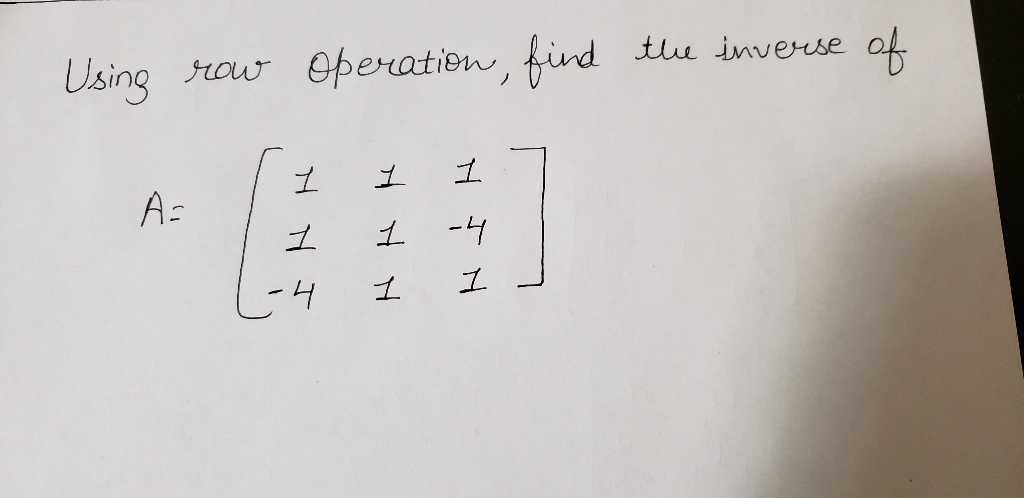 Using row Operation, find the inverse of
1 1 1
A= 1 1 -4
-4 1 1